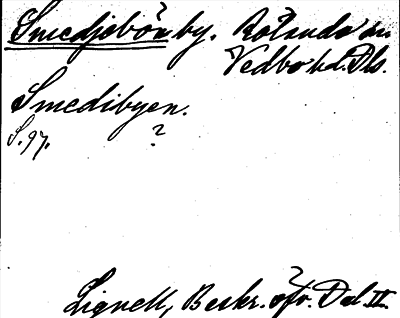 Smedjebön by. Rölanda sn.
Vedbo hd. Dls.
Smedibyen.
S. 97. ?
Lignell, Beskr. öfv. Dal. II.